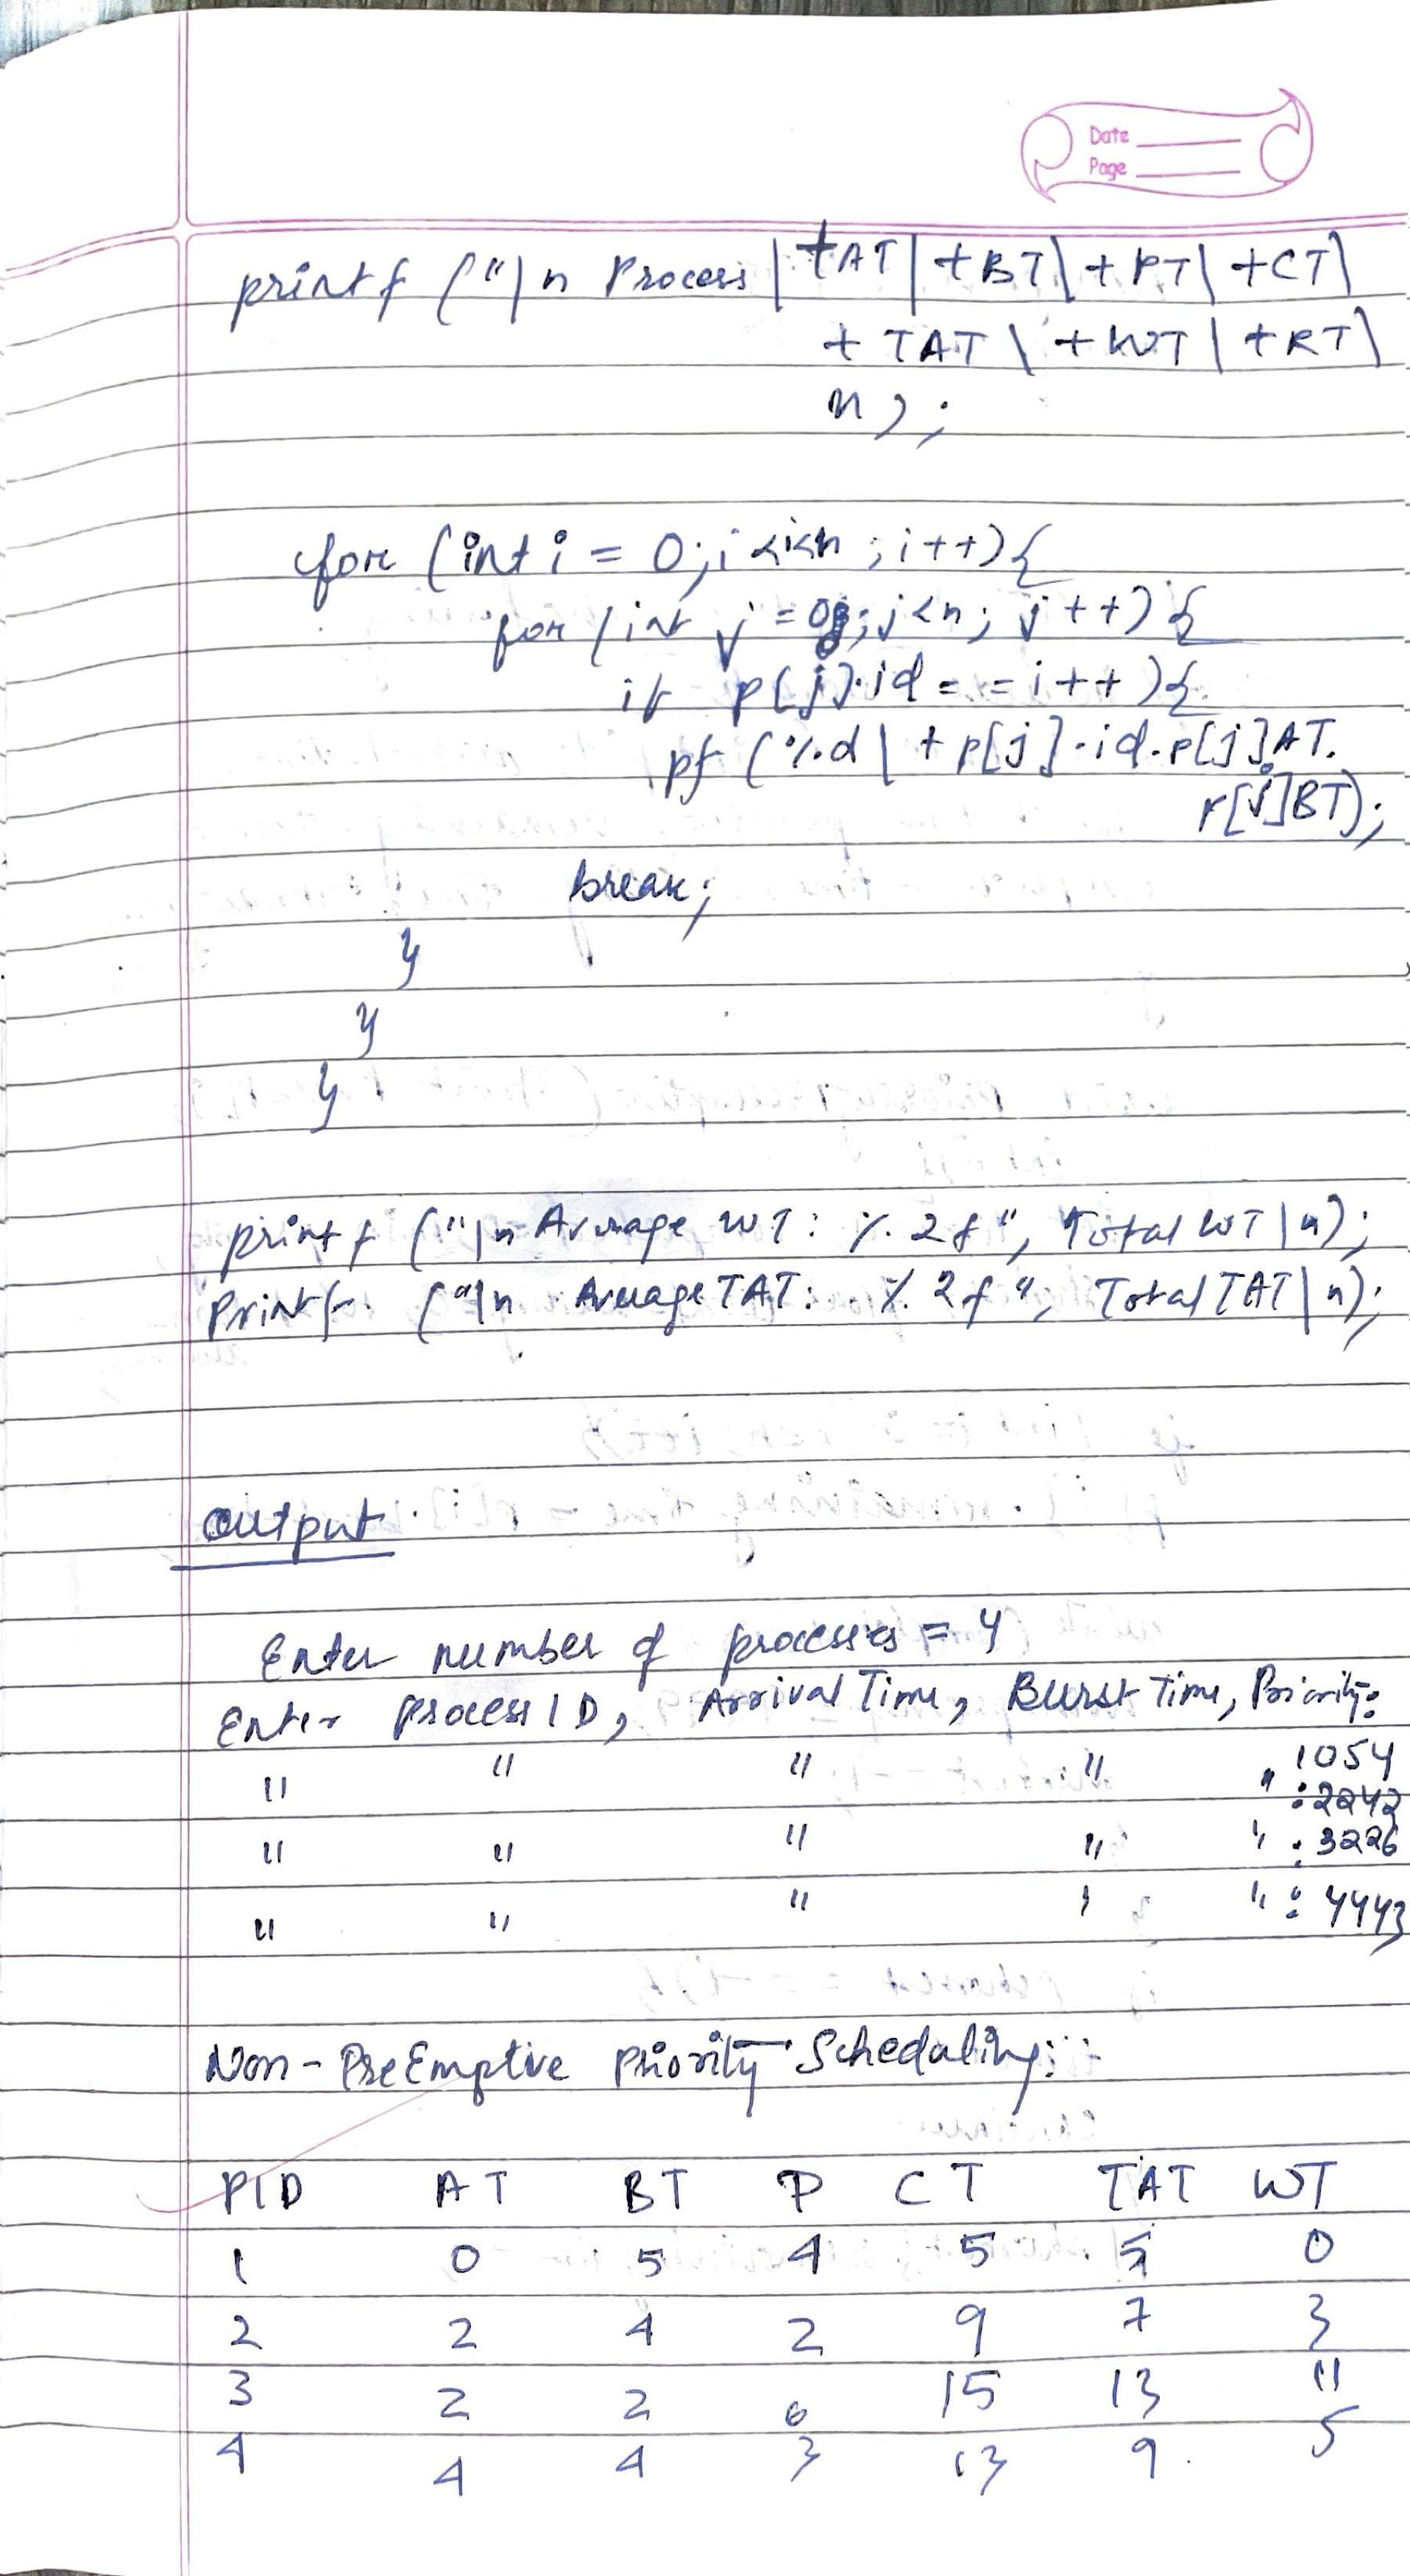 Date
Page
printf ("\n Process \tAT\tBT\tPT\tCT\
tTAT\tWT\tRT\
n);
for (int i = 0; i<n; i++){
for (int j = 0; j<n; j++){
if p[j].id == i++){
pf (%d\t p[j].id.p[j]AT.
p[j]BT);
break;
}
}
}
printf ("\n Average WT: %.2f", Total WT\n);
Printf ("\n Average TAT: %.2f", Total TAT\n);
Output
Enter number of processes = 4
Enter Process ID, Arrival Time, Burst Time, Priority:
" " " " " 1054
: 2242
" " " " " : 3226
" " " " : 4443
Non-PreEmptive Priority Scheduling:
PID AT BT P CT TAT WT
1 0 5 4 5 5 0
2 2 4 2 9 7 3
3 2 2 6 15 13 11
4 4 4 3 13 9 5